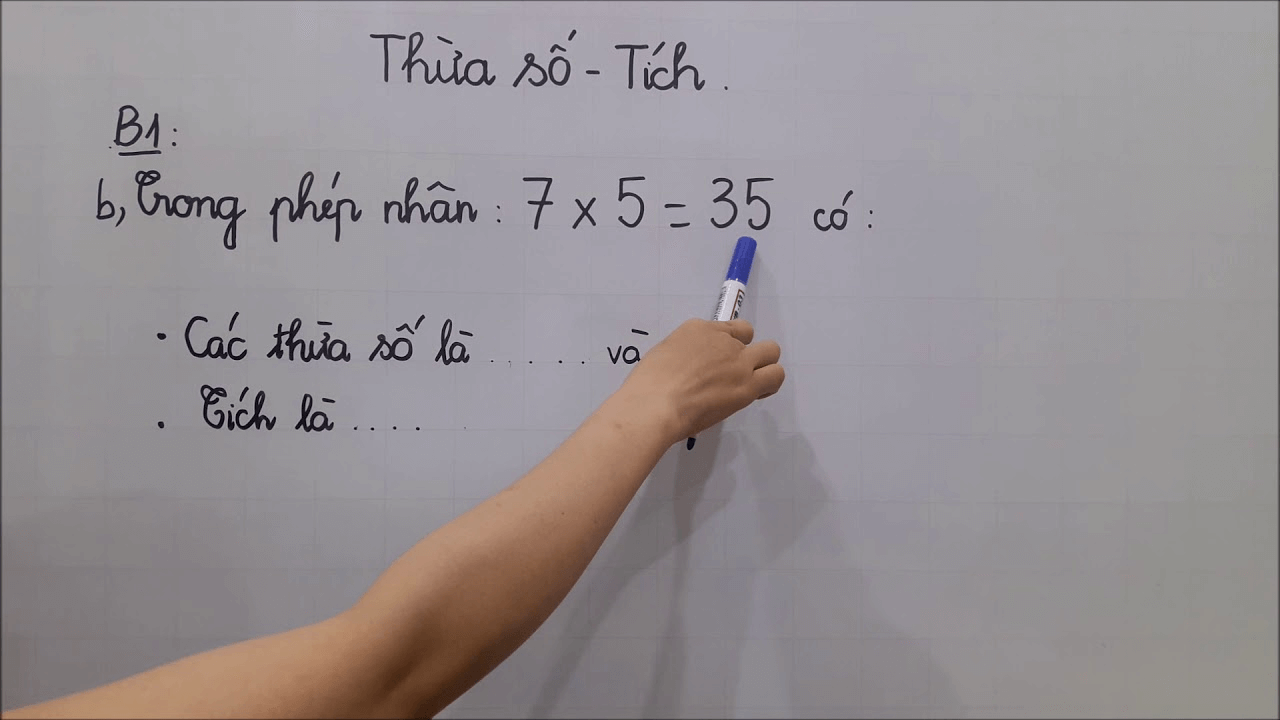 Thừa số - Tích.
B1:
b, Trong phép nhân: 7 x 5 = 35 có:
. Các thừa số là ..... và
. Tích là ....